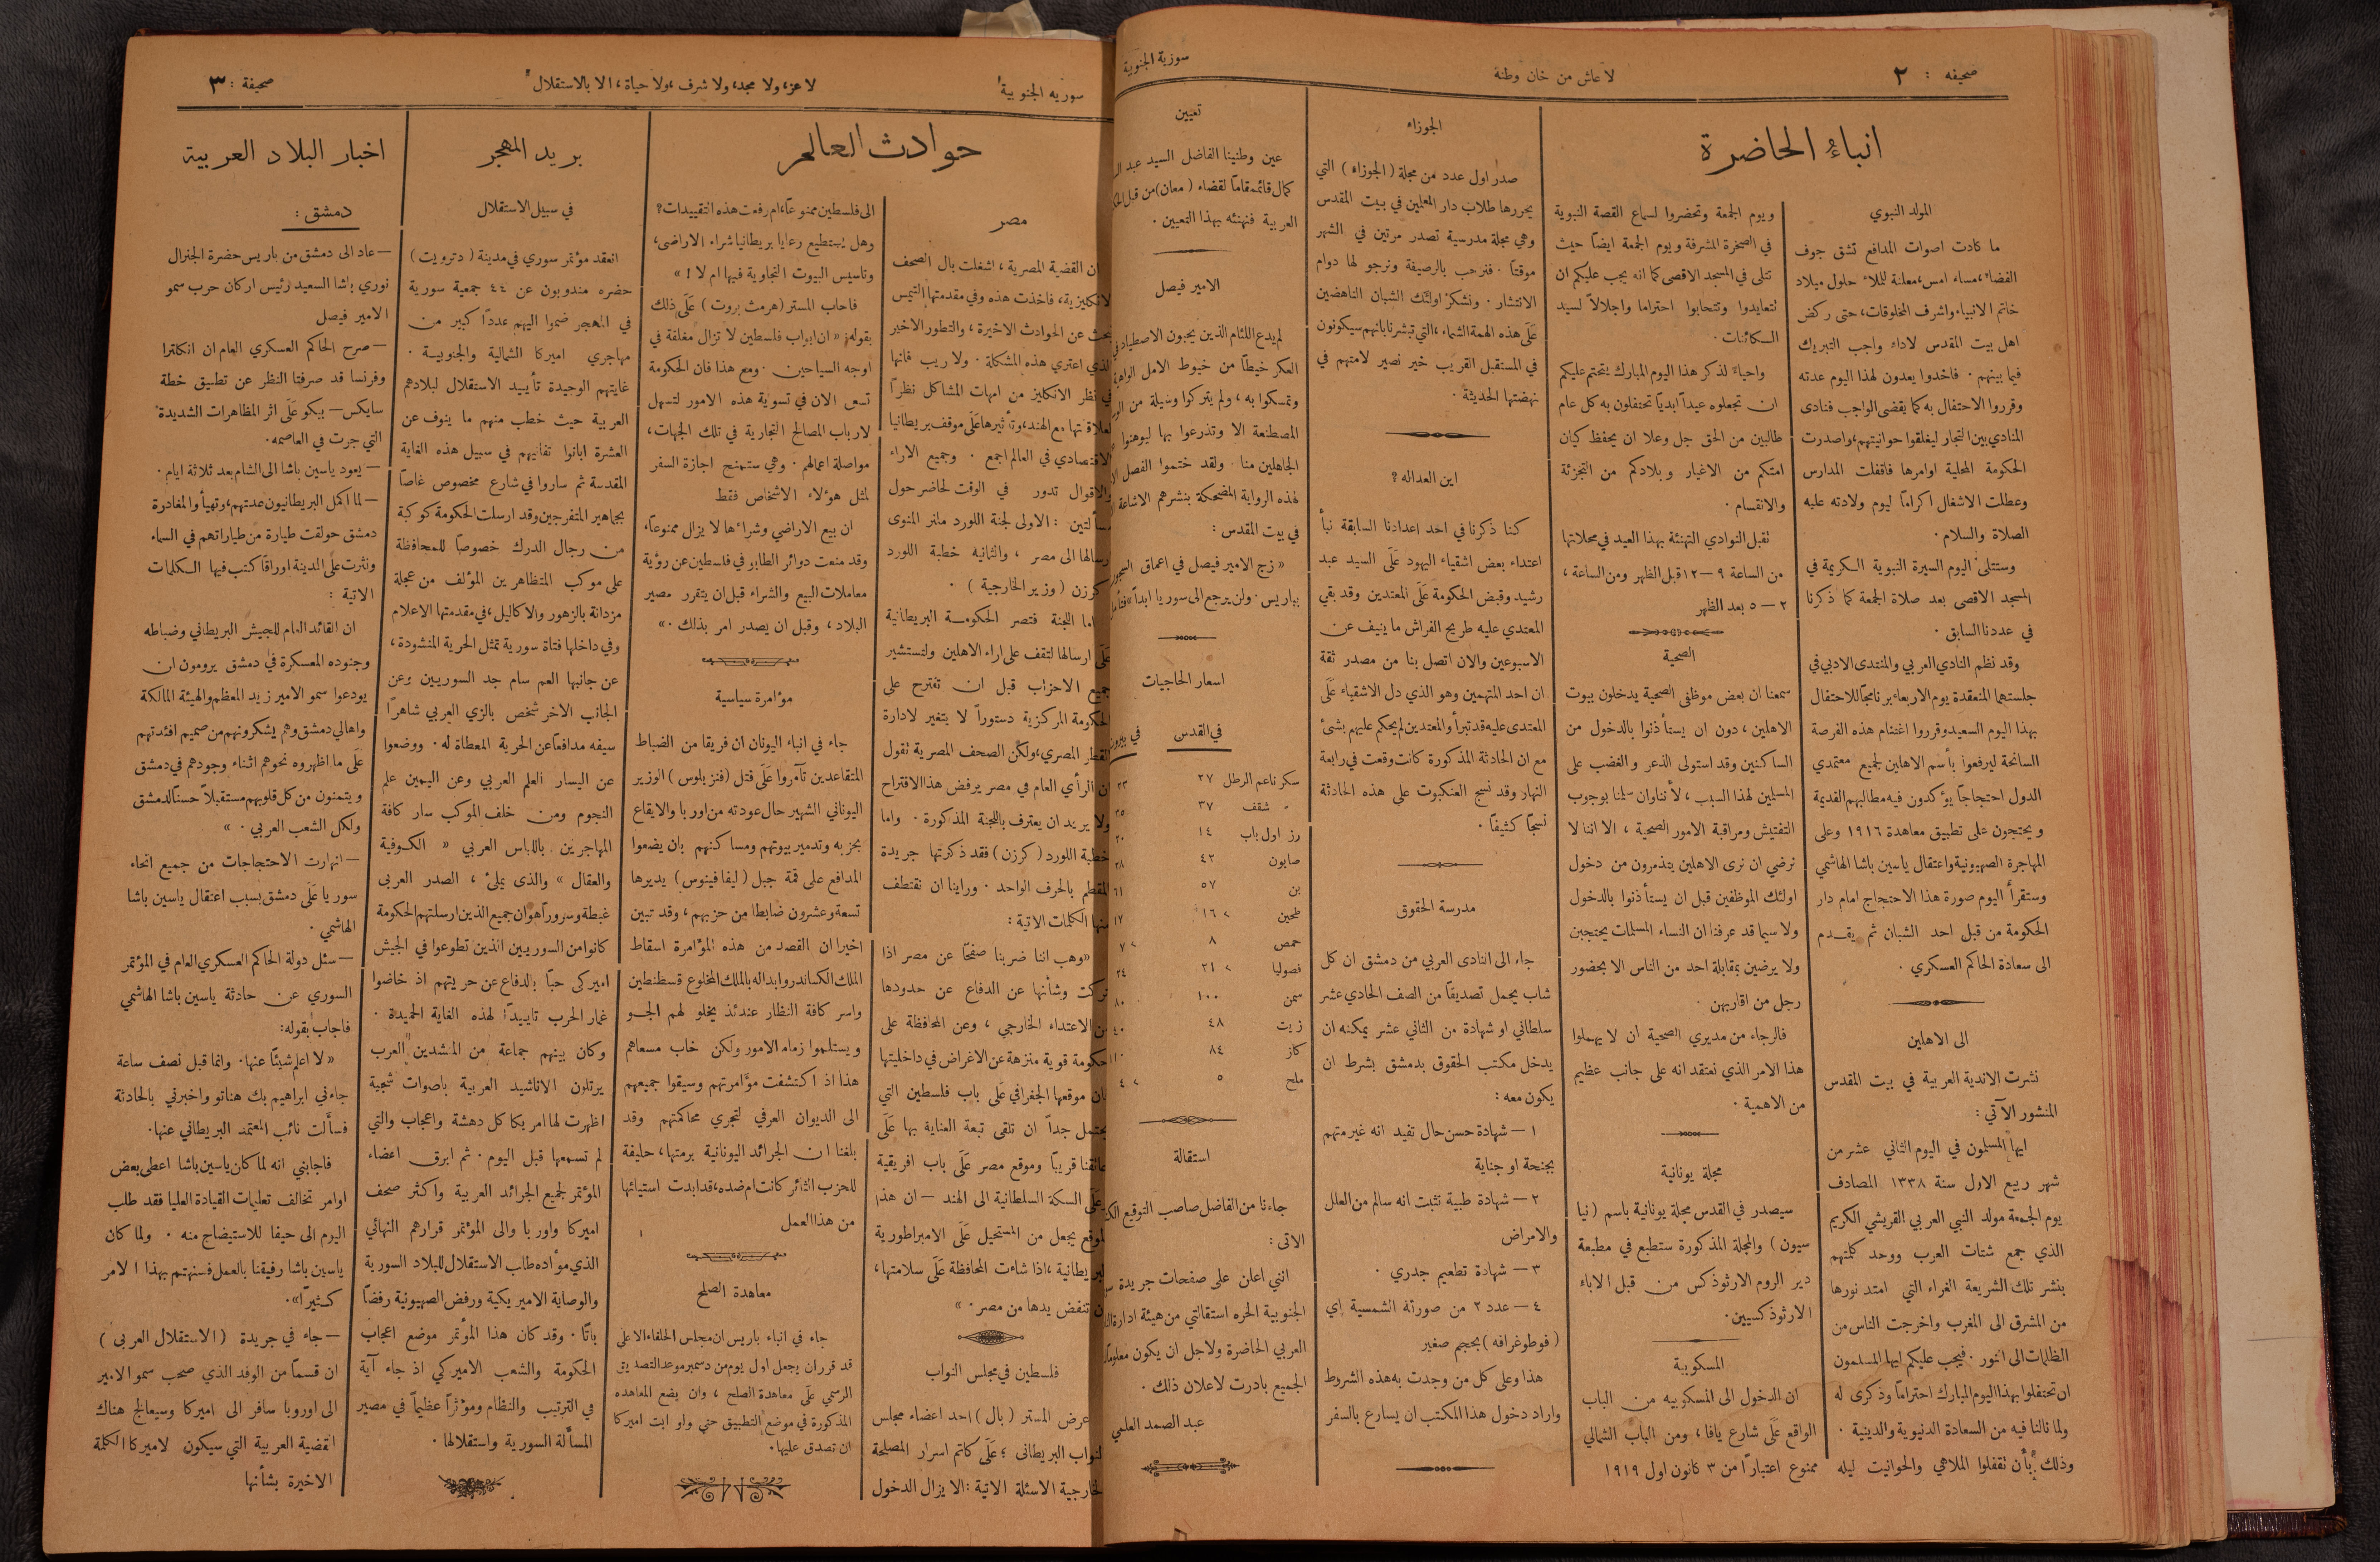 صحيفه : ٢
لا عاش من خان وطنه
سورية الجنوبية
انباء الحاضرة
المولد النبوي
ما كادت اصوات المدافع تشق جوف
الفضاء، مساء امس، معلنة للملاء حلول ميلاد
خاتم الانبياء واشرف المخلوقات، حتى ركض
اهل بيت المقدس لاداء واجب التبريك
فيما بينهم . فاخذوا يعدون لهذا اليوم عدته
وقرروا الاحتفال به كما يقضي الواجب فنادى
المنادي بين التجار ليغلقوا حوانيتهم، واصدرت
الحكومة المحلية اوامرها فاقفلت المدارس
وعطلت الاشغال اكراماً ليوم ولادته عليه
الصلاة والسلام .
وستتلى اليوم السيرة النبوية الكريمة في
المسجد الاقصى بعد صلاة الجمعة كما ذكرنا
في عددنا السابق .
وقد نظم النادي العربي والمنتدى الادبي في
جلستهما المنعقدة يوم الاربعاء برنامجاً للاحتفال
بهذا اليوم السعيد وقرروا اغتنام هذه الفرصة
السانحة ليرفعوا بأسم الاهلين لجميع معتمدي
الدول احتجاجاً يؤكدون فيه مطاليبهم القديمة
ويحتجون على تطبيق معاهدة ١٩١٦ وعلى
المهاجرة الصهيونية واعتقال ياسين باشا الهاشمي
وستقرأ اليوم صورة هذا الاحتجاج امام دار
الحكومة من قبل احد الشبان ثم يقدم
الى سعادة الحاكم العسكري .
الى الاهلين
نشرت الاندية العربية في بيت المقدس
المنشور الآتي :
ايها المسلمون في اليوم الثاني عشر من
شهر ربيع الاول سنة ١٣٣٨ المصادف
يوم الجمعة مولد النبي العربي القريشي الكريم
الذي جمع شتات العرب ووحد كلمتهم
بنشر تلك الشريعة الغراء التي امتد نورها
من المشرق الى المغرب واخرجت الناس من
الظلمات الى النور . فيجب عليكم ايها المسلمون
ان تحتفلوا بهذا اليوم المبارك احتراماً وذكرى له
ولما نالنا فيه من السعادة الدنيوية والدينية .
وذلك بأن تقفلوا الملاهي والحوانيت ليله
ويوم الجمعة وتحضروا لسماع القصة النبوية
في الصخرة المشرفة ويوم الجمعة ايضاً حيث
تتلى في المسجد الاقصى كما انه يجب عليكم ان
تتعايدوا وتتحابوا احتراما واجلالاً لسيد
الكائنات .
واحياءً لذكر هذا اليوم المبارك يتحتم عليكم
ان تجعلوه عيداً ابدياً تحتفلون به كل عام
طالبين من الحق جل وعلا ان يحفظ كيان
امتكم من الاغيار وبلادكم من التجزئة
والانقسام .
تقبل النوادي التهنئة بهذا العيد في محلاتها
من الساعة ٩ — ١٢ قبل الظهر ومن الساعة ،
٢ — ٥ بعد الظهر
الصحية
سمعنا ان بعض موظفي الصحية يدخلون بيوت
الاهلين ، دون ان يستأذنوا بالدخول من
الساكنين وقد استولى الذعر والغضب على
المسلمين لهذا السبب ، لأننا وان سلمنا بوجوب
التفتيش ومراقبة الامور الصحية ، الا اننا لا
نرضي ان نرى الاهلين يتذمرون من دخول
اولئك الموظفين قبل ان يستأذنوا بالدخول
ولا سيما قد عرفنا ان النساء المسلمات يحتجبن
ولا يرضين بمقابلة احد من الناس الا بحضور
رجل من اقاربهن .
فالرجاء من مديري الصحية ان لا يهملوا
هذا الامر الذي نعتقد انه على جانب عظيم
من الاهمية .
مجلة يونانية
سيصدر في القدس مجلة يونانية باسم (نيا
سيون) والمجلة المذكورة ستطبع في مطبعة
دير الروم الارثوذكس من قبل الاباء
الارثوذكسيين .
المسكوبية
ان الدخول الى المسكوبيه من الباب
الواقع عَلَى شارع يافا ، ومن الباب الشمالي
ممنوع اعتباراً من ٣ كانون اول ١٩١٩
الجوزاء
صدر اول عدد من مجلة (الجوزاء) التي
يحررها طلاب دار المعلمين في بيت المقدس
وهي مجلة مدرسية تصدر مرتين في الشهر
موقتاً . فنرحب بالرصيفة ونرجو لها دوام
الانتشار . ونشكر اولئك الشبان الناهضين
عَلَى هذه الهمة الشماء ، التي تبشرنا بانهم سيكونون
في المستقبل القريب خير نصير لامتهم في
نهضتها الحديثة .
اين العداله ؟
كنا ذكرنا في احد اعدادنا السابقة نبأ
اعتداء بعض اشقياء اليهود عَلَى السيد عبد
رشيد وقبض الحكومة عَلَى المعتدين وقد بقي
المعتدي عليه طريح الفراش ما ينيف عن
الاسبوعين والان اتصل بنا من مصدر ثقة
ان احد المتهمين وهو الذي دل الاشقياء عَلَى
المعتدى عليه قد تبرأ والمعتدين لم يحكم عليهم بشئ
مع ان الحادثة المذكورة كانت وقعت في رابعة
النهار وقد نسج العنكبوت على هذه الحادثة
نسجاً كثيفاً .
مدرسة الحقوق
جاء الى النادى العربي من دمشق ان كل
شاب يحمل تصديقاً من الصف الحادي عشر
سلطاني او شهادة من الثاني عشر يمكنه ان
يدخل مكتب الحقوق بدمشق بشرط ان
يكون معه :
١ — شهادة حسن حال تفيد انه غير متهم
بجنحة او جناية
٢ — شهادة طبية تثبت انه سالم من العلل
والامراض
٣ — شهادة تطعيم جدري .
٤ — عدد ٢ من صورتة الشمسية اي
(فوطوغرافه) بحجم صغير
هذا وعلى كل من وجدت به هذه الشروط
واراد دخول هذا المكتب ان يسارع بالسفر
تعيين
عين وطنينا الفاضل السيد عبد
كمال قائمقاماً لقضاء (معان) من قبل
العربية فنهنئه بهذا التعيين .
الامير فيصل
لم يدع اللئام الذين يحبون الاصطياد في
العكر خيطاً من خيوط الامل الواهية
وتمسكوا به ، ولم يتركوا وسيلة من
المصطنعة الا وتذرعوا بها ليوهنوا
الجاهلين منا . ولقد ختموا الفصل
لهذه الرواية المضحكة بنشرهم الاشاعة
في بيت المقدس :
« زج الامير فيصل في اعماق السجون
بباريس . ولن يرجع الى سوريا ابداً »
اسعار الحاجيات
في القدس في بيروت
سكر ناعم الرطل ٢٧ ٢٣
« شقف ٣٧ ٢٥
رز اول باب ١٤ ٢٠
صابون ٤٢ ٢٨
بن ٥٧ ٦١
طحين » ١٦ ١٧
حمص ٨ » ٧
فصوليا » ٢١ ٢٤
سمن ١٠٠ ٨٠
زيت ٤٨ ٤٠
كاز ٨٤ ١١٠
ملح ٥ » ٤
استقالة
جاءنا من الفاضل صاصب التوقيع
الاتى :
انني اعلن على صفحات جريدة
الجنوبية الحره استقالتي من هيئة ادارة
العربي الحاضرة ولاجل ان يكون معلوماً
الجميع بادرت لاعلان ذلك .
عبد الصمد العلمي
سوريه الجنوبية
لا عز، ولا مجد، ولا شرف، ولا حياة، الا بالاستقلال
صحيفة : ٣
حوادث العالم
مصر
ان القضية المصرية ، اشغلت بال الصحف
الانكليزية، فاخذت هذه وفي مقدمتها التيمس
تبحث عن الحوادث الاخيرة ، والتطور الاخير
الذي اعترى هذه المشكلة . ولا ريب فانها
في نظر الانكليز من امهات المشاكل نظراً
لعلاقتها مع الهند، وتأثيرها عَلَى موقف بريطانيا
الاقتصادي في العالم اجمع . وجميع الاراء
والاقوال تدور في الوقت لحاضر حول
مسألتين : الاولى لجنة اللورد ملنر المنوى
ارسالها الى مصر ، والثانيه خطبة اللورد
كرزن (وزير الخارجية) .
اما اللجنة فتصر الحكومة البريطانية
عَلَى ارسالها لتقف على اراء الاهلين ولتستشير
جميع الاحزاب قبل ان تقترح على
الحكومة المركزية دستوراً لا يتغير لادارة
القطر المصري، ولكن الصحف المصرية تقول
ان الرأي العام في مصر يرفض هذا الاقتراح
ولا يريد ان يعترف باللجنة المذكورة . واما
خطبة اللورد (كرزن) فقد ذكرتها جريدة
المقطم بالحرف الواحد . وراينا ان نقتطف
منها الكلمات الاتية :
«وهب اننا ضربنا صفحاً عن مصر اذا
تركت وشأنها عن الدفاع عن حدودها
من الاعتداء الخارجي ، وعن المحافظة على
حكومة قوية منزهة عن الاغراض في داخليتها
فان موقعها الجغرافي عَلَى باب فلسطين التي
يحتمل جداً ان تلقى تبعة العناية بها عَلَى
عاتقنا قريباً وموقع مصر عَلَى باب افريقية
وعلى السكة السلطانية الى الهند — ان هذا
الموقع يجعل من المستحيل عَلَى الامبراطورية
البريطانية ، اذا شاءت المحافظة عَلَى سلامتها ،
ان تنفض يدها من مصر . »
فلسطين في مجلس النواب
عرض المستر (بال) احد اعضاء مجلس
النواب البريطانى ؛ عَلَى كاتم اسرار المصلحة
الخارجية الاسئلة الاتية : الا يزال الدخول
الى فلسطين ممنوعاً، ام رفعت هذه التقييدات ؟
وهل يستطيع رعايا بريطانيا شراء الاراضى ،
وتاسيس البيوت التجاوية فيها ام لا ! »
فاجاب المستر (هرمث بروت) عَلَى ذلك
بقوله : « ان ابواب فلسطين لا تزال مغلقة في
اوجه السياحين . ومع هذا فان الحكومة
تسعى الان في تسوية هذه الامور لتسهل
لارباب المصالح التجارية في تلك الجهات ،
مواصلة اعمالهم . وهي ستمنح اجازة السفر
لمثل هؤلاء الاشخاص فقط
ان بيع الاراضي وشراءها لا يزال ممنوعاً ،
وقد منعت دوائر الطابو في فلسطين عن رؤية
معاملات البيع والشراء قبل ان يتقرر مصير
البلاد ، وقبل ان يصدر امر بذلك . »
مؤامرة سياسية
جاء في انباء اليونان ان فريقا من الضباط
المتقاعدين تآمروا عَلَى قتل (فنزيلوس) الوزير
اليوناني الشهير حال عودته من اوربا والايقاع
بحزبه وتدمير بيوتهم ومساكنهم بان يضعوا
المدافع على قمة جبل (ليفافينوس) يديرها
تسعة وعشرون ضابطا من حزبهم ، وقد تبين
اخيرا ان القصد من هذه المؤامرة اسقاط
الملك الكساندر وابداله بالملك المخلوع قسطنطين
واسر كافة النظار عندئذ يخلو لهم الجو
ويستلموا زمام الامور ولكن خاب مسعاهم
هذا اذ اكتشفت مؤامرتهم وسيقوا جميعهم
الى الديوان العرفي لتجري محاكمتهم وقد
بلغنا ان الجرائد اليونانية برمتها ، حليفة
للحزب الثائر كانت ام ضده، قد ابدت استيائها
من هذا العمل
معاهدة الصلح
جاء في انباء باريس ان مجلس الحلفاء الاعلى
قد قرر ان يجعل اول يوم من دسمبر موعد التصديق
الرسمي عَلَى معاهدة الصلح ، وان يضع المعاهده
المذكورة في موضع التطبيق حتى ولو ابت اميركا
ان تصدق عليها .
بريد المهجر
في سبيل الاستقلال
انعقد مؤتمر سوري في مدينة (دترويت)
حضره مندوبون عن ٤٤ جمعية سورية
في المهجر ضموا اليهم عدداً كبير من
مهاجري اميركا الشمالية والجنوبية .
غايتهم الوحيدة تأييد الاستقلال لبلادهم
العربية حيث خطب منهم ما ينوف عن
العشرة ابانوا تفانيهم في سبيل هذه الغاية
المقدسة ثم ساروا في شارع مخصوص غاصاً
بجماهير المتفرجين وقد ارسلت الحكومة كوكبة
من رجال الدرك خصوصاً للمحافظة
على موكب المتظاهرين المؤلف من عجلة
مزدانة بالزهور والاكاليل ، في مقدمتها الاعلام
وفي داخلها فتاة سورية تمثل الحرية المنشودة ،
عن جانبها العم سام جد السوريين وعن
الجانب الاخر شخص بالزي العربي شاهراً
سيفه مدافعاً عن الحرية المعطاة له . ووضعوا
عن اليسار العلم العربي وعن اليمين علم
النجوم ومن خلف الموكب سار كافة
المهاجرين باللباس العربي « الكوفية
والعقال » والذى يملئ ، الصدر العربى
غبطة وسروراً هو ان جميع الذين ارسلتهم الحكومة
كانوا من السوريين الذين تطوعوا في الجيش
اميركى حباً بالدفاع عن حريتهم اذ خاضوا
غمار الحرب تاييداً لهذه الغاية الحميدة .
وكان بينهم جماعة من المنشدين العرب
يرتلون الاناشيد العربية باصوات شجية
اظهرت لها امريكا كل دهشة واعجاب والتي
لم تسمعها قبل اليوم . ثم ابرق اعضاء
المؤتمر لجميع الجرائد العربية واكثر صحف
اميركا واوربا والى المؤتمر قرارهم النهائي
الذي مؤاده طلب الاستقلال للبلاد السورية
والوصاية الاميريكية ورفض الصهيونية رفضاً
باتاً . وقد كان هذا المؤتمر موضع اعجاب
الحكومة والشعب الاميركي اذ جاء آية
في الترتيب والنظام ومؤثراً عظيماً في مصير
المسألة السورية واستقلالها .
اخبار البلاد العربية
دمشق :
— عاد الى دمشق من باريس حضرة الجنرال
نوري باشا السعيد رئيس اركان حرب سمو
الامير فيصل
— صرح الحاكم العسكري العام ان انكلترا
وفرنسا قد صرفتا النظر عن تطبيق خطة
سايكس — بيكو عَلَى اثر المظاهرات الشديدة
التي جرت في العاصمه .
— يعود ياسين باشا الى الشام بعد ثلاثة ايام .
— لما اكمل البريطانيون عدتهم، وتهيأوا لمغادرة
دمشق حولقت طيارة من طياراتهم في السماء
ونثرت عَلَى المدينة اوراقاً كتب فيها الكلمات
الاتية :
ان القائد العام للجيش البريطاني وضباطه
وجنوده المعسكرة في دمشق يرومون ان
يودعوا سمو الامير زيد المعظم والهيئة المالكة
واهالي دمشق وهم يشكرونهم من صميم افئدتهم
عَلَى ما اظهروه نحوهم اثناء وجودهم في دمشق
ويتمنون من كل قلوبهم مستقبلاً حسناً لدمشق
ولكل الشعب العربي . »
— انهارت الاحتجاجات من جميع انحاء
سوريا عَلَى دمشق بسبب اعتقال ياسين باشا
الهاشمي .
— سئل دولة الحاكم العسكري العام في المؤتمر
السوري عن حادثة ياسين باشا الهاشمي
فاجاب بقوله :
« لا اعلم شيئاً عنها . وانما قبل نصف ساعة
جاءني ابراهيم بك هنانو واخبرني بالحادثة
فسألت نائب المعتمد البريطاني عنها .
فاجابني انه لما كان ياسين باشا اعطى بعض
اوامر تخالف تعليمات القيادة العليا فقد طلب
اليوم الى حيفا للاستيضاح منه . ولما كان
ياسين باشا رفيقنا بالعمل فسنهتم بهذا الامر
كثيراً» .
— جاء في جريدة (الاستقلال العربى)
ان قسماً من الوفد الذي صحب سمو الامير
الى اوروبا سافر الى اميركا وسيعالج هناك
القضية العربية التي سيكون لاميركا الكلمة
الاخيرة بشأنها